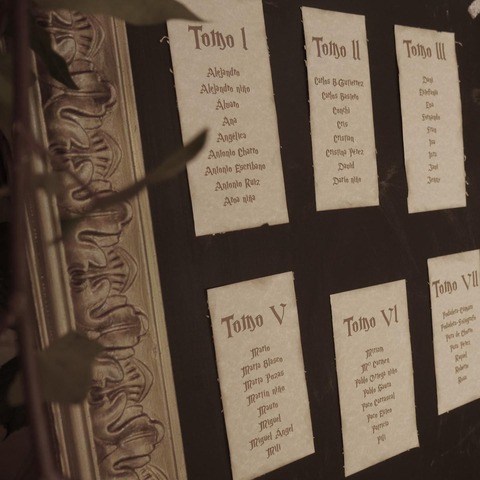 Tomo I
Alejandro
Alejandro niño
Álvaro
Ana
Angélica
Antonio Charro
Antonio Escribano
Antonio Ruiz
Aroa niña
Tomo II
Carlos B. Gutiérrez
Carlos Bastero
Conchi
Cris
Cristian
Cristina Pérez
David
Darío niño
Tomo III
Estefanía
Eva
Fernando
José
Tomo V
Mario
Marta Blasco
Marta Pozas
Martín niño
Mauro
Miguel
Miguel Ángel
Mili
Tomo VI
Miriam
Mª Carmen
Pablo Ortega niño
Pablo
Paco Carrascal
Paco
Patricia
Pili
Tomo VII
Paco Pérez
Raquel
Roberto
Rosa